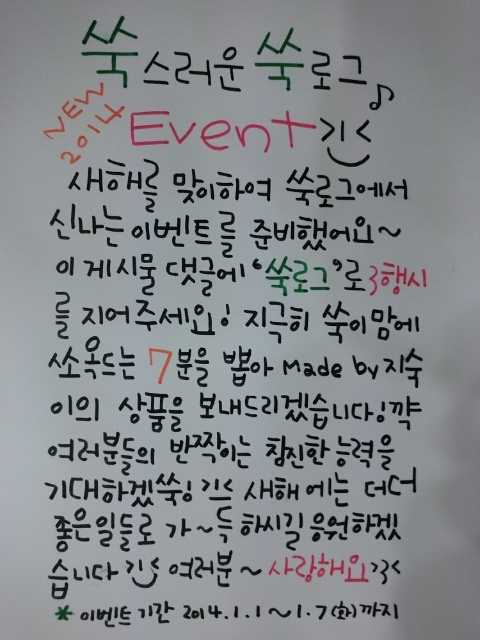 쑥스러운 쑥로그♪
NEW 2014 Event >;<
새해를 맞이하여 쑥로그에서
신나는 이벤트를 준비했어요~
이 게시물 댓글에 '쑥로그'로 3행시
를 지어주세요! 지극히 쑥이 맘에
쏘옥드는 7분을 뽑아 Made by 지숙
이의 상품을 보내드리겠습니다! 꺅
여러분들의 반짝이는 참진한 능력을
기대하겠쑥! >;< 새해에는 더더
좋은 일들로 가~득하시길 응원하겠
습니다 >;< 여러분~ 사랑해요 >3<
* 이벤트 기간 2014.1.1~1.7(화)까지